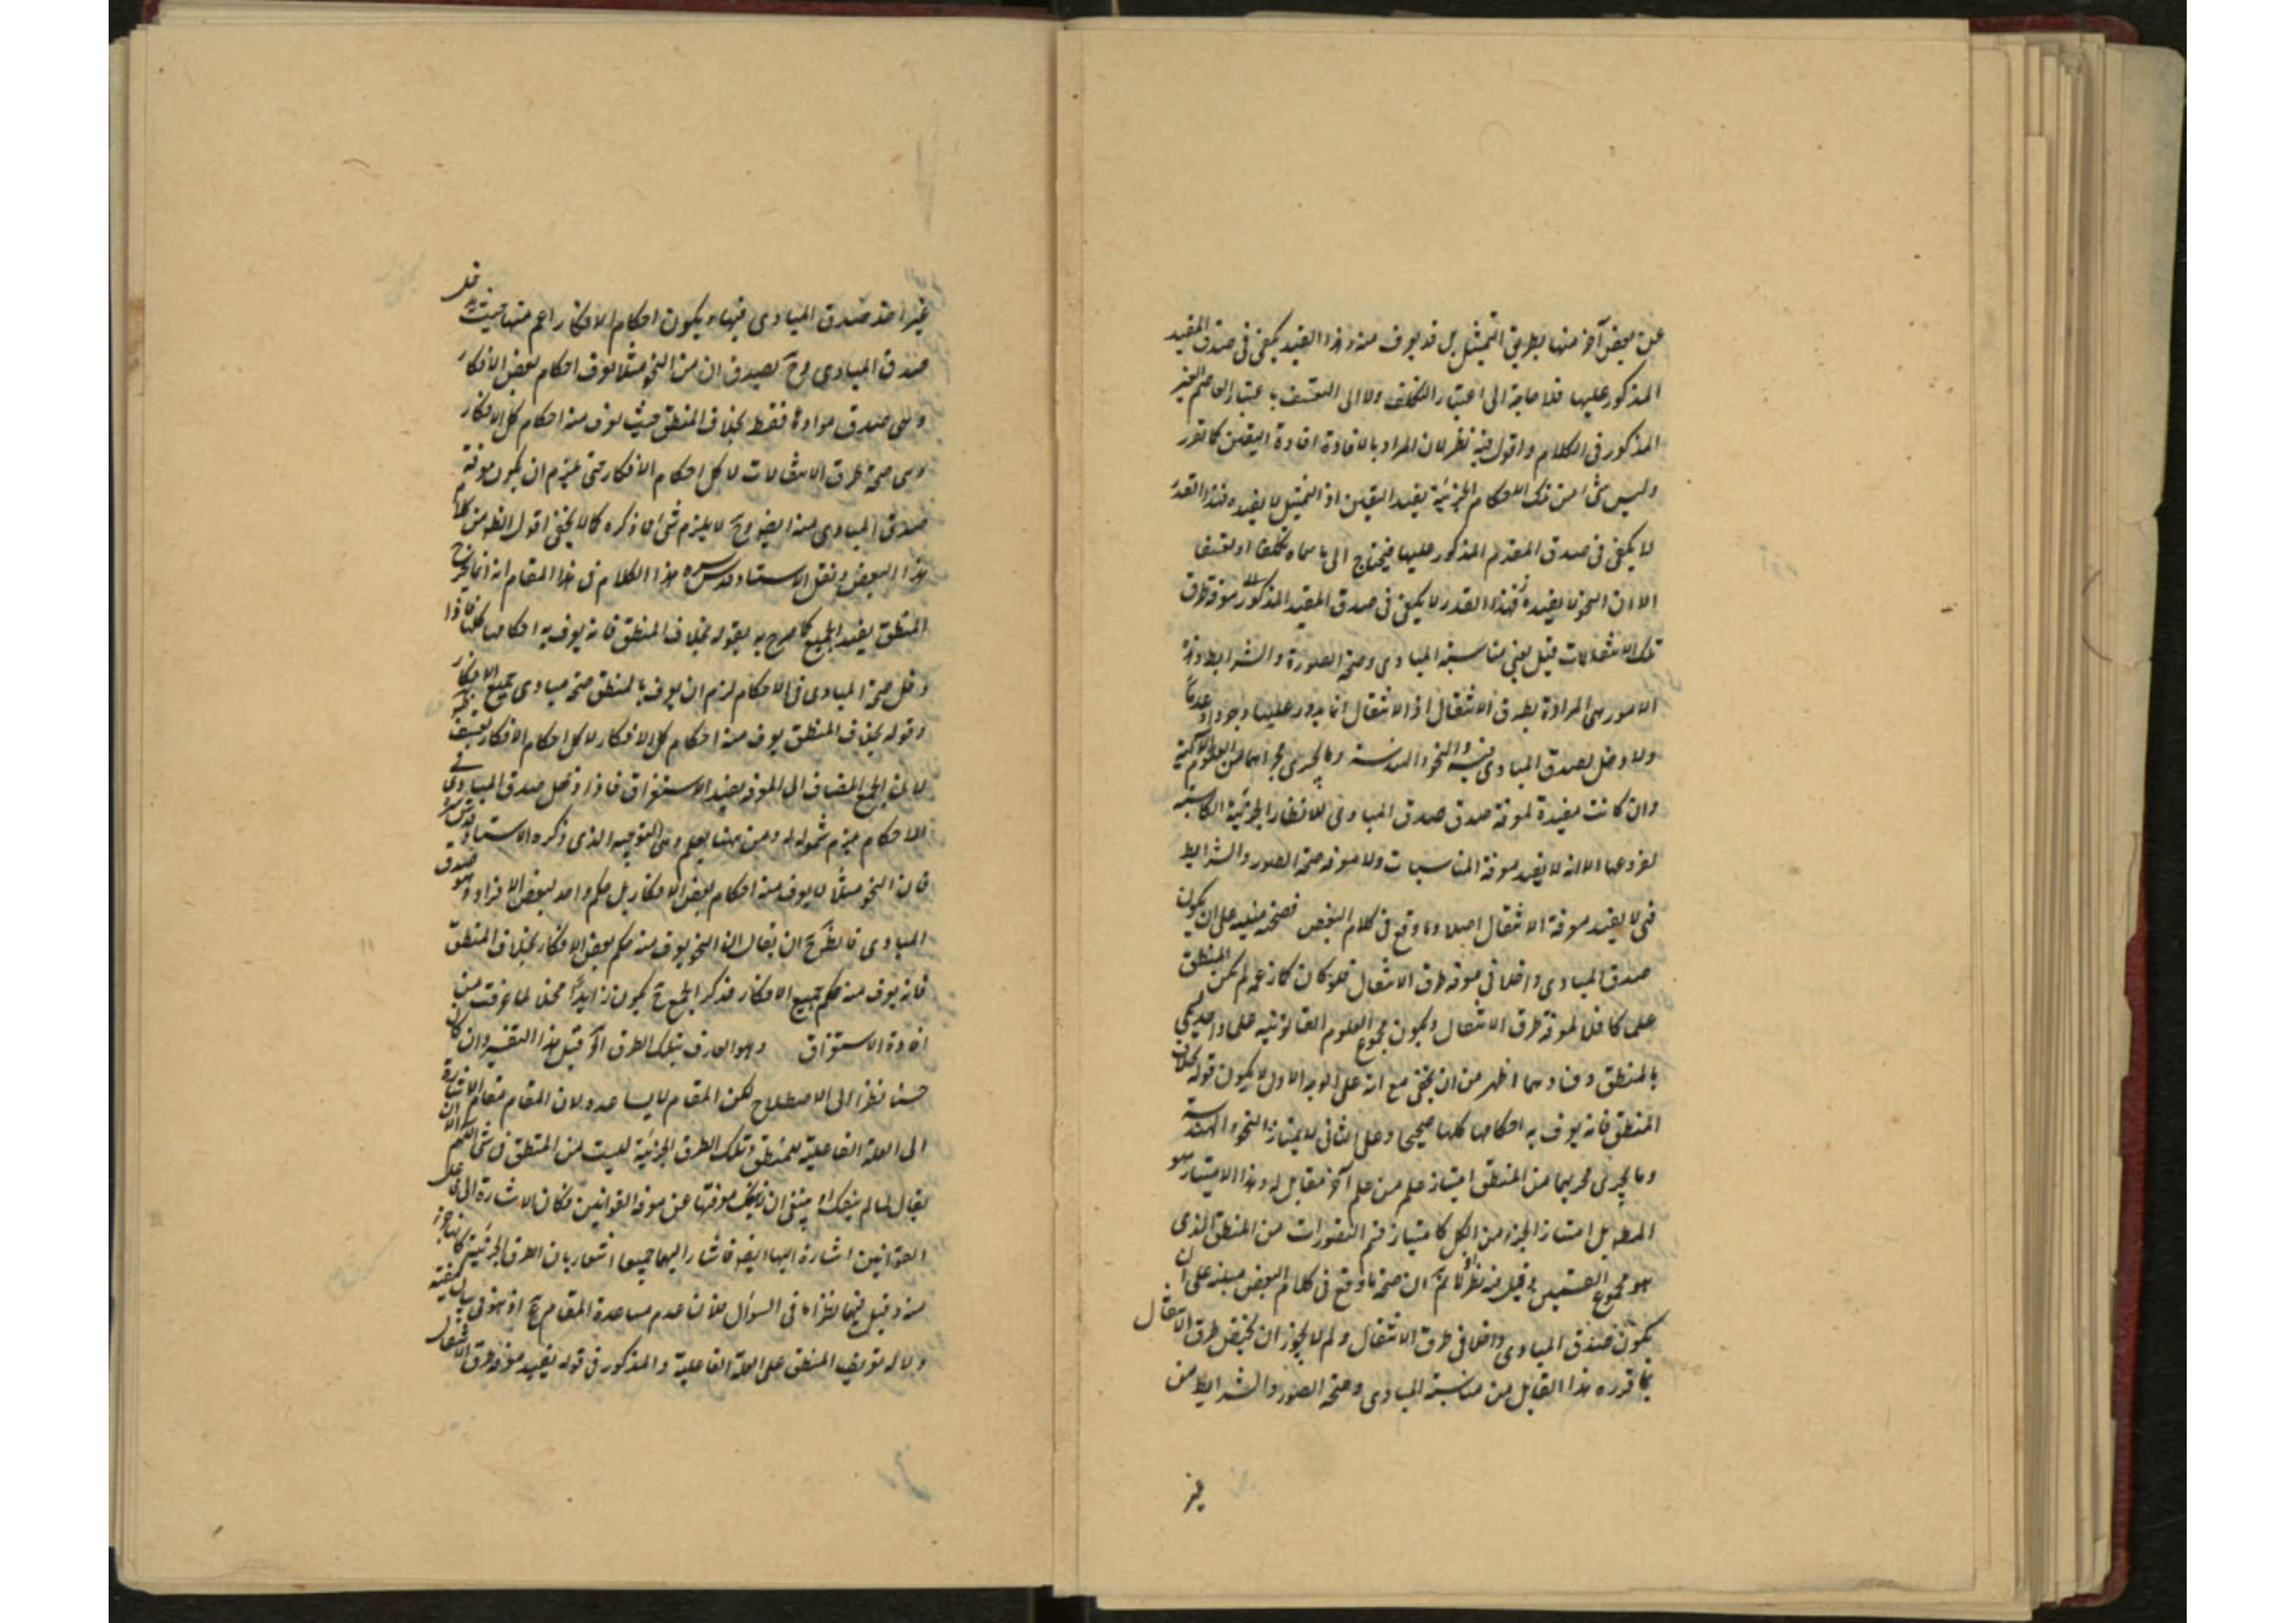 عن بعض آخر منها بطريق التمثيل بل قد يعرف منه وهذا القيد يكفى فى صدق المقيد
المذكور عليها فلا حاجة الى اعتبار التكلف ولا الى التعسف باعتبار العاصم الغير
المذكور فى الكلام واقول فيه نظر لان المراد بالافادة افادة اليقين كما تقرر
وليس شئ من تلك الاحكام الجزئية يفيد اليقين اذ التمثيل لا يفيده فهذا القدر
لا يكفى فى صدق المقدم المذكور عليها فيحتاج الى ما سماه تكلفا او تعسف
الا ان النحو لا يفيده فهذا القدر لا يكفى فى صدق المقيد المذكور معرفة طرق
تلك الانتقالات قيل يعنى مناسبة المبادى وصحة الصورة والشرايط وهذه
الامور هى المرادة بطرق الانتقال اذ الانتقال انما يدور عليها وجودا وعدما
ولا دخل لصدق المبادى فيه والنحو والهندسة وما يجرى مجراهما من العلوم الآلية
وان كانت مفيدة لمعرفة صدق صدق المبادى للانظار الجزئية الكاسبة
لفروعها الا انه لا يفيد معرفة المناسبات ولا معرفة صحة الصور والشرايط
فهى لا يفيد معرفة الانتقال اصلا وما وقع فى كلام البعض فصحته مبنية على ان يكون
صدق المبادى داخلا فى معرفة طرق الانتقال فلو كان كما زعمه لم يكن المنطق
علما كافلا لمعرفة طرق الانتقال ويكون مجموع العلوم القانونية علما واحدا يسمى
بالمنطق وفسادهما اظهر من ان يخفى مع انه على الوجه الاول لا يكون قوله بخلاف
المنطق فانه يعرف به احكامها كلها صحيحا وعلى الثانى لا يمتاز النحو والهندسة
وما يجرى مجريهما من المنطق امتياز علم من علم آخر مقابل له وهذا الامتياز هو
المط بل امتياز الجزء من الكل كامتياز قسم التصورات من المنطق الذى
هو مجموع القسمين قيل فيه نظر اذ لا نم ان صحة ما وقع فى كلام البعض مبنية على ان
يكون صدق المبادى داخلا فى طرق الانتقال ولم لا يجوز ان يختص طرق الانتقال
بما قرره هذا القايل من مناسبة المبادى وصحة الصور والشرايط من
غير
غير اخذ صدق المبادى فيها ويكون احكام الافكار اعم منها حيث يدخل
صدق المبادى وح يصدق ان من النحو مثلا يعرف احكام بعض الافكار
وهى صدق موادها فقط بخلاف المنطق حيث يعرف منه احكام كل الافكار
وهى صحة طرق الانتقالات لا كل احكام الافكار حتى يلزم ان يكون معرفة
صدق المبادى منه ايضا وح لا يلزم شئ مما ذكره كما لا يخفى اقول الظ من كلام
هذا البعض ونقل الاستاد قدس سره هذا الكلام فى هذا المقام انه انما يخرج
المنطق يفيد الجميع كما صرح به بقوله بخلاف المنطق فانه يعرف به احكامها كلها فاذا
دخل صحة المبادى فى الاحكام لزم ان يعرف بالمنطق صحة مبادى جميع الافكار
وقوله بخلاف المنطق يعرف منه احكام كل الافكار لا كل احكام الافكار تعسف
لان الجمع المضاف الى المعرفة يفيد الاستغراق فاذا دخل صدق المبادى فى
الاحكام يلزم شموله له ومن ههنا يعلم وهن التوجيه الذى ذكره الاستاد قدس سره
فان النحو مثلا لا يعرف منه احكام بعض الافكار بل حكم واحد لبعض الافراد وهو صدق
المبادى فالظ ح ان يقال ان النحو يعرف منه حكم بعض الافكار بخلاف المنطق
فانه يعرف منه حكم جميع الافكار فذكر الجمع ح يكون زايدا مخلا لما عرفت من
افادة الاستغراق وهو العارف بتلك الطرق آه قيل هذا التفسير وان كان
حسنا نظرا الى الاصطلاح لكن المقام لا يساعده لان المقام مقام الاشارة
الى العلة الفاعلية للمنطق وتلك الطرق الجزئية ليست من المنطق فى شئ اللهم الا ان
يقال لما لم ينفك معرفتها عن معرفة القوانين فكان الاشارة الى
القوانين اشارة اليها ايضا فاشار اليهما جميعا اشعارا بان الطرق الجزئية كانها جزء
منه وقيل فيها نظر اما فى السؤال فلان عدم مساعدة المقام ح اذ هو فى بيان كيفية
دلالة تعريف المنطق على العلة الفاعلية والمذكور فى قوله يفيد معرفة طرق الانتقال